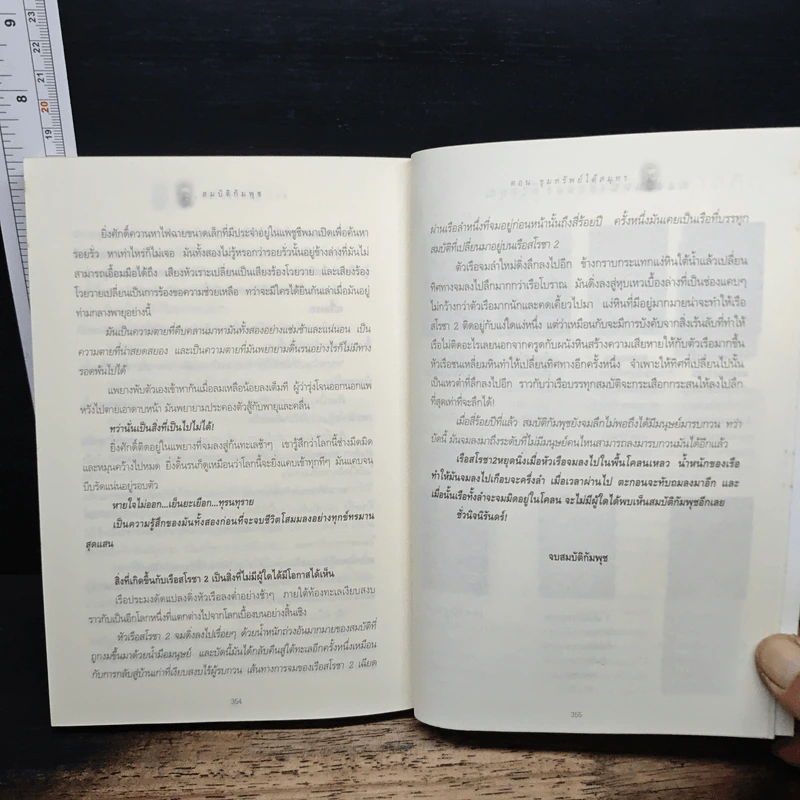 สมบัติกัมพุช
ยิ่งศักดิ์ควานหาไฟฉายขนาดเล็กที่มีประจำอยู่ในแพชูชีพมาเปิดเพื่อค้นหา
รอยรั่ว หาเท่าไหร่ก็ไม่เจอ มันทั้งสองไม่รู้หรอกว่ารอยรั่วนั้นอยู่ข้างล่างที่มันไม่
สามารถเอื้อมมือได้ถึง เสียงหัวเราะเปลี่ยนเป็นเสียงร้องโวยวาย และเสียงร้อง
โวยวายเปลี่ยนเป็นการร้องขอความช่วยเหลือ ทว่าจะมีใครได้ยินกันเล่าเมื่อมันอยู่
ท่ามกลางพายุอย่างนี้
มันเป็นความตายที่คืบคลานมาหามันทั้งสองอย่างแช่มช้าและแน่นอน เป็น
ความตายที่น่าสยดสยอง และเป็นความตายที่มันพยายามดิ้นรนอย่างไรก็ไม่มีทาง
รอดพ้นไปได้
แพยางพับตัวเองเข้าหากันเมื่อลมเหลือน้อยลงเต็มที ผู้ว่ารุ่งโจนออกนอกแพ
หวังไปตายเอาดาบหน้า มันพยายามประคองตัวสู้กับพายุและคลื่น
ทว่านั่นเป็นสิ่งที่เป็นไปไม่ได้!
ยิ่งศักดิ์ติดอยู่ในแพยางที่จมลงสู่ก้นทะเลช้าๆ เขารู้สึกว่าโลกนี้ช่างมืดมิด
และหมุนคว้างไปหมด ยิ่งดิ้นรนก็ดูเหมือนว่าโลกนี้จะยิ่งแคบเข้าทุกทีๆ มันแคบจน
บีบรัดแน่นอยู่รอบตัว
หายใจไม่ออก...เย็นยะเยือก...ทุรนทุราย
เป็นความรู้สึกของมันทั้งสองก่อนที่จะจบชีวิตโสมมลงอย่างทุกข์ทรมาน
สุดแสน
สิ่งที่เกิดขึ้นกับเรือสโรชา 2 เป็นสิ่งที่ไม่มีผู้ใดได้มีโอกาสได้เห็น
เรือประมงดัดแปลงดิ่งหัวเรือลงต่ำอย่างช้าๆ ภายใต้ท้องทะเลเงียบสงบ
ราวกับเป็นอีกโลกหนึ่งที่แตกต่างไปจากโลกเบื้องบนอย่างสิ้นเชิง
หัวเรือสโรชา 2 จมดิ่งลงไปเรื่อยๆ ด้วยน้ำหนักถ่วงอันมากมายของสมบัติที่
ถูกงมขึ้นมาด้วยน้ำมือมนุษย์ และบัดนี้มันได้กลับคืนสู่ใต้ทะเลอีกครั้งหนึ่งเหมือน
กับการกลับสู่บ้านเก่าที่เงียบสงบไร้ผู้รบกวน เส้นทางการจมของเรือสโรชา 2 เฉียด
354
ตอน ขุมทรัพย์ใต้สมุทร
ผ่านเรือลำหนึ่งที่จมอยู่ก่อนหน้านั้นถึงสี่ร้อยปี ครั้งหนึ่งมันเคยเป็นเรือที่บรรทุก
สมบัติที่เปลี่ยนมาอยู่บนเรือสโรชา 2
ตัวเรือจมลำใหม่ดิ่งลึกลงไปอีก ข้างกราบกระแทกแง่หินใต้น้ำแล้วเปลี่ยน
ทิศทางจมลงไปลึกมากกว่าเรือโบราณ มันดิ่งลงสู่หุบเหวเบื้องล่างที่เป็นช่องแคบๆ
ไม่กว้างกว่าตัวเรือมากนักและคดเคี้ยวไปมา แง่หินที่มีอยู่มากมายน่าจะทำให้เรือ
สโรชา 2 ติดอยู่กับแง่ใดแง่หนึ่ง แต่ว่าเหมือนกับจะมีการบังคับจากสิ่งเร้นลับที่ทำให้
เรือไม่ติดอะไรเลยนอกจากครูดกับผนังหินสร้างความเสียหายให้กับตัวเรือมากขึ้น
หัวเรือชนเหลี่ยมหินทำให้เปลี่ยนทิศทางอีกครั้งหนึ่ง จำเพาะให้ทิศที่เปลี่ยนไปนั้น
เป็นเหวต่ำที่ลึกลงไปอีก ราวกับว่าเรือบรรทุกสมบัติจะกระเสือกกระสนให้ลงไปลึก
ที่สุดเท่าที่จะลึกได้!
เมื่อสี่ร้อยปีที่แล้ว สมบัติกัมพุชยังจมลึกไม่พอถึงได้มีมนุษย์มารบกวน ทว่า
บัดนี้ มันจมลงมาถึงระดับที่ไม่มีมนุษย์คนไหนสามารถลงมารบกวนมันได้อีกแล้ว
เรือสโรชา2หยุดนิ่งเมื่อหัวเรือจมลงไปในพื้นโคลนเหลว น้ำหนักของเรือ
ทำให้มันจมลงไปเกือบจะครึ่งลำ เมื่อเวลาผ่านไป ตะกอนจะทับถมลงมาอีก และ
เมื่อนั้นเรือทั้งลำจะจมมิดอยู่ในโคลน จะไม่มีผู้ใดได้พบเห็นสมบัติกัมพุชอีกเลย
ชั่วนิจนิรันดร์!
จบสมบัติกัมพุช
355
9
8
23
22
21
20
19
18